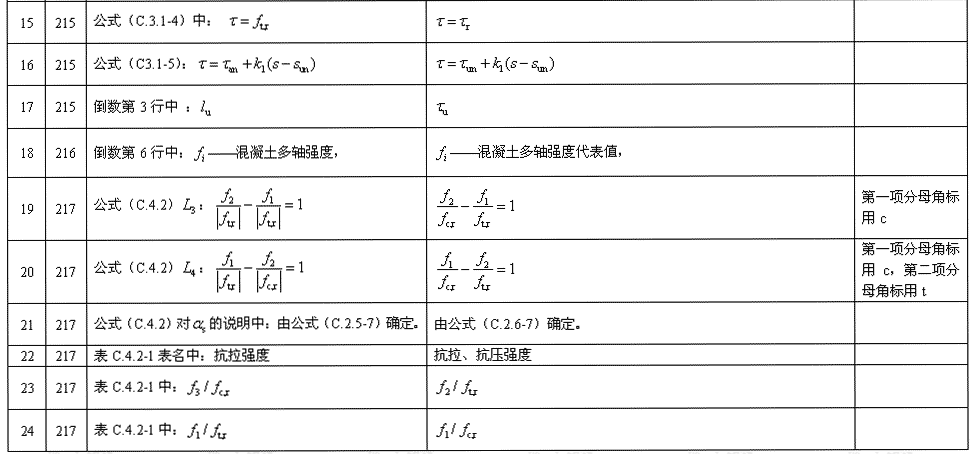 15 215 公式（C.3.1-4）中： τ = f_{t,r} τ = τ_r
16 215 公式（C3.1-5）：τ = τ_{un} + k_1(s − s_{un}) τ = τ_{un} + k_1(s − s_{un})
17 215 倒数第 3 行中 ：l_u τ_u
18 216 倒数第 6 行中：f_i ——混凝土多轴强度， f_i ——混凝土多轴强度代表值，
19 217 公式（C.4.2）L_3：f_2/|f_{t,r}| − f_1/|f_{t,r}| = 1 f_2/f_{c,r} − f_1/f_{t,r} = 1 第一项分母角标
用 c
20 217 公式（C.4.2）L_4：f_1/|f_{t,r}| − f_2/|f_{c,r}| = 1 f_1/f_{c,r} − f_2/f_{t,r} = 1 第一项分母角标
用 c，第二项分
母角标用 t
21 217 公式（C.4.2）对 α_s 的说明中：由公式（C.2.5-7）确定。 由公式（C.2.6-7）确定。
22 217 表 C.4.2-1 表名中：抗拉强度 抗拉、抗压强度
23 217 表 C.4.2-1 中：f_3 / f_{c,r} f_2 / f_{t,r}
24 217 表 C.4.2-1 中：f_1 / f_{t,r} f_1 / f_{c,r}